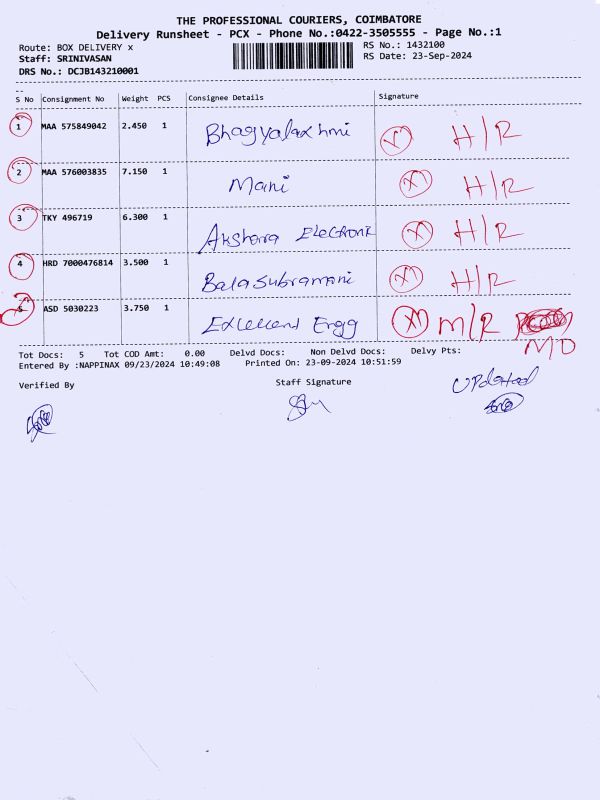 THE PROFESSIONAL COURIERS, COIMBATORE
Delivery Runsheet - PCX - Phone No.:0422-3505555 - Page No.:1
Route: BOX DELIVERY x RS No.: 1432100
Staff: SRINIVASAN RS Date: 23-Sep-2024
DRS No.: DCJB143210001
S No Consignment No Weight PCS Consignee Details Signature
1 MAA 575849042 2.450 1 Bhagyalaxhmi H/R
2 MAA 576003835 7.150 1 Mani H/R
3 TKY 496719 6.300 1 Akshara Electronik H/R
4 HRD 7000476814 3.500 1 Balasubramani H/R
5 ASD 5030223 3.750 1 Excellent Engg M/R
MD
Tot Docs: 5 Tot COD Amt: 0.00 Delvd Docs: Non Delvd Docs: Delvy Pts:
Entered By :NAPPINAX 09/23/2024 10:49:08 Printed On: 23-09-2024 10:51:59
Verified By Staff Signature Updated